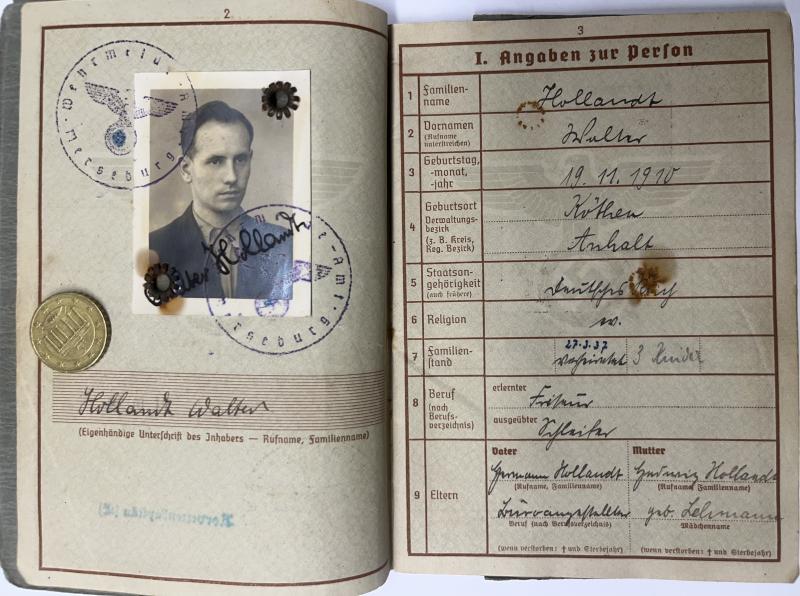 2
Wehrmeldeamt Merseburg
Walter Hollandt
Hollandt Walter
(Eigenhändige Unterschrift des Inhabers — Rufname, Familienname)
3
I. Angaben zur Person
1 Familien-
name
Hollandt
2 Vornamen
(Rufname
unterstreichen)
Walter
3 Geburtstag,
-monat,
-jahr
19. 11. 1910
4 Geburtsort
Verwaltungs-
bezirk
(z. B. Kreis,
Reg. Bezirk)
Köthen
Anhalt
5 Staatsan-
gehörigkeit
(auch frühere)
Deutsches Reich
6 Religion
7 Familien-
stand
27.3.37
verheiratet 3 Kinder
8 Beruf
(nach
Berufs-
verzeichnis)
erlernter
Friseur
ausgeübter
Schleifer
9 Eltern
Vater
Hermann Hollandt
(Rufname, Familienname)
Büroangestellter
Beruf (nach Berufsverzeichnis)
(wenn verstorben: † und Sterbejahr)
Mutter
Hedwig Hollandt
(Rufname, Familienname)
geb. Lehmann
Mädchenname
(wenn verstorben: † und Sterbejahr)